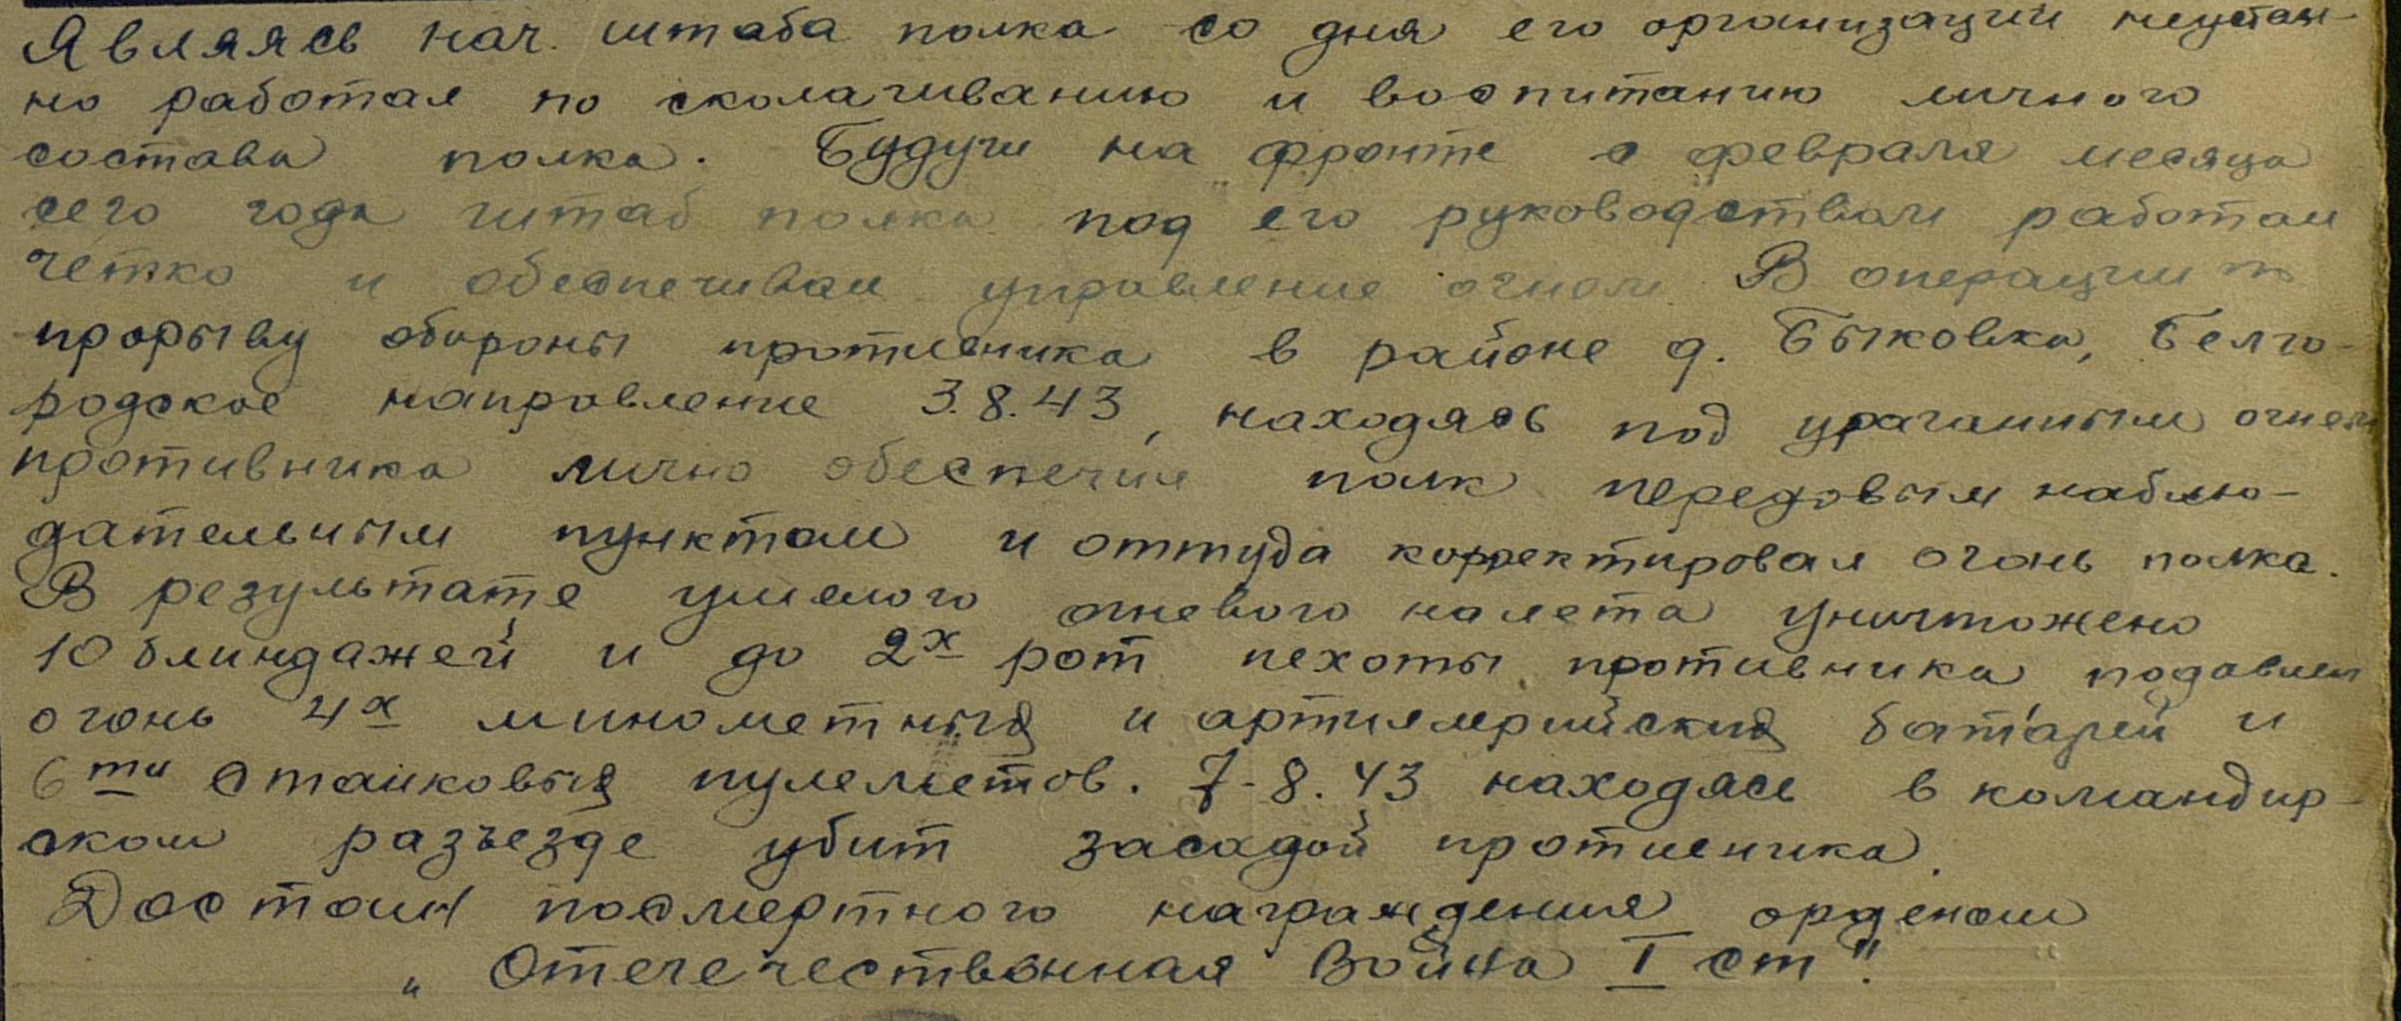 Являясь нач. штаба полка со дня его организации неустан-
но работал по сколачиванию и воспитанию личного
состава полка. Будучи на фронте с февраля месяца
сего года штаб полка под его руководством работал
чётко и обеспечивал управление огнем. В операции по
прорыву обороны противника в районе д. Быковка, Белго-
родское направление 3.8.43, находясь под ураганным огнем
противника лично обеспечил полк передовым наблю-
дательным пунктом и оттуда корректировал огонь полка.
В результате умелого огневого налета уничтожено
10 блиндажей и до 2х рот пехоты противника подавлен
огонь 4х минометных и артиллерийских батарей и
6ти станковых пулеметов. 7-8.43 находясь в командир-
ском разъезде убит засадой противника.
Достоин посмертного награждения орденом
„Отечественная Война I ст".